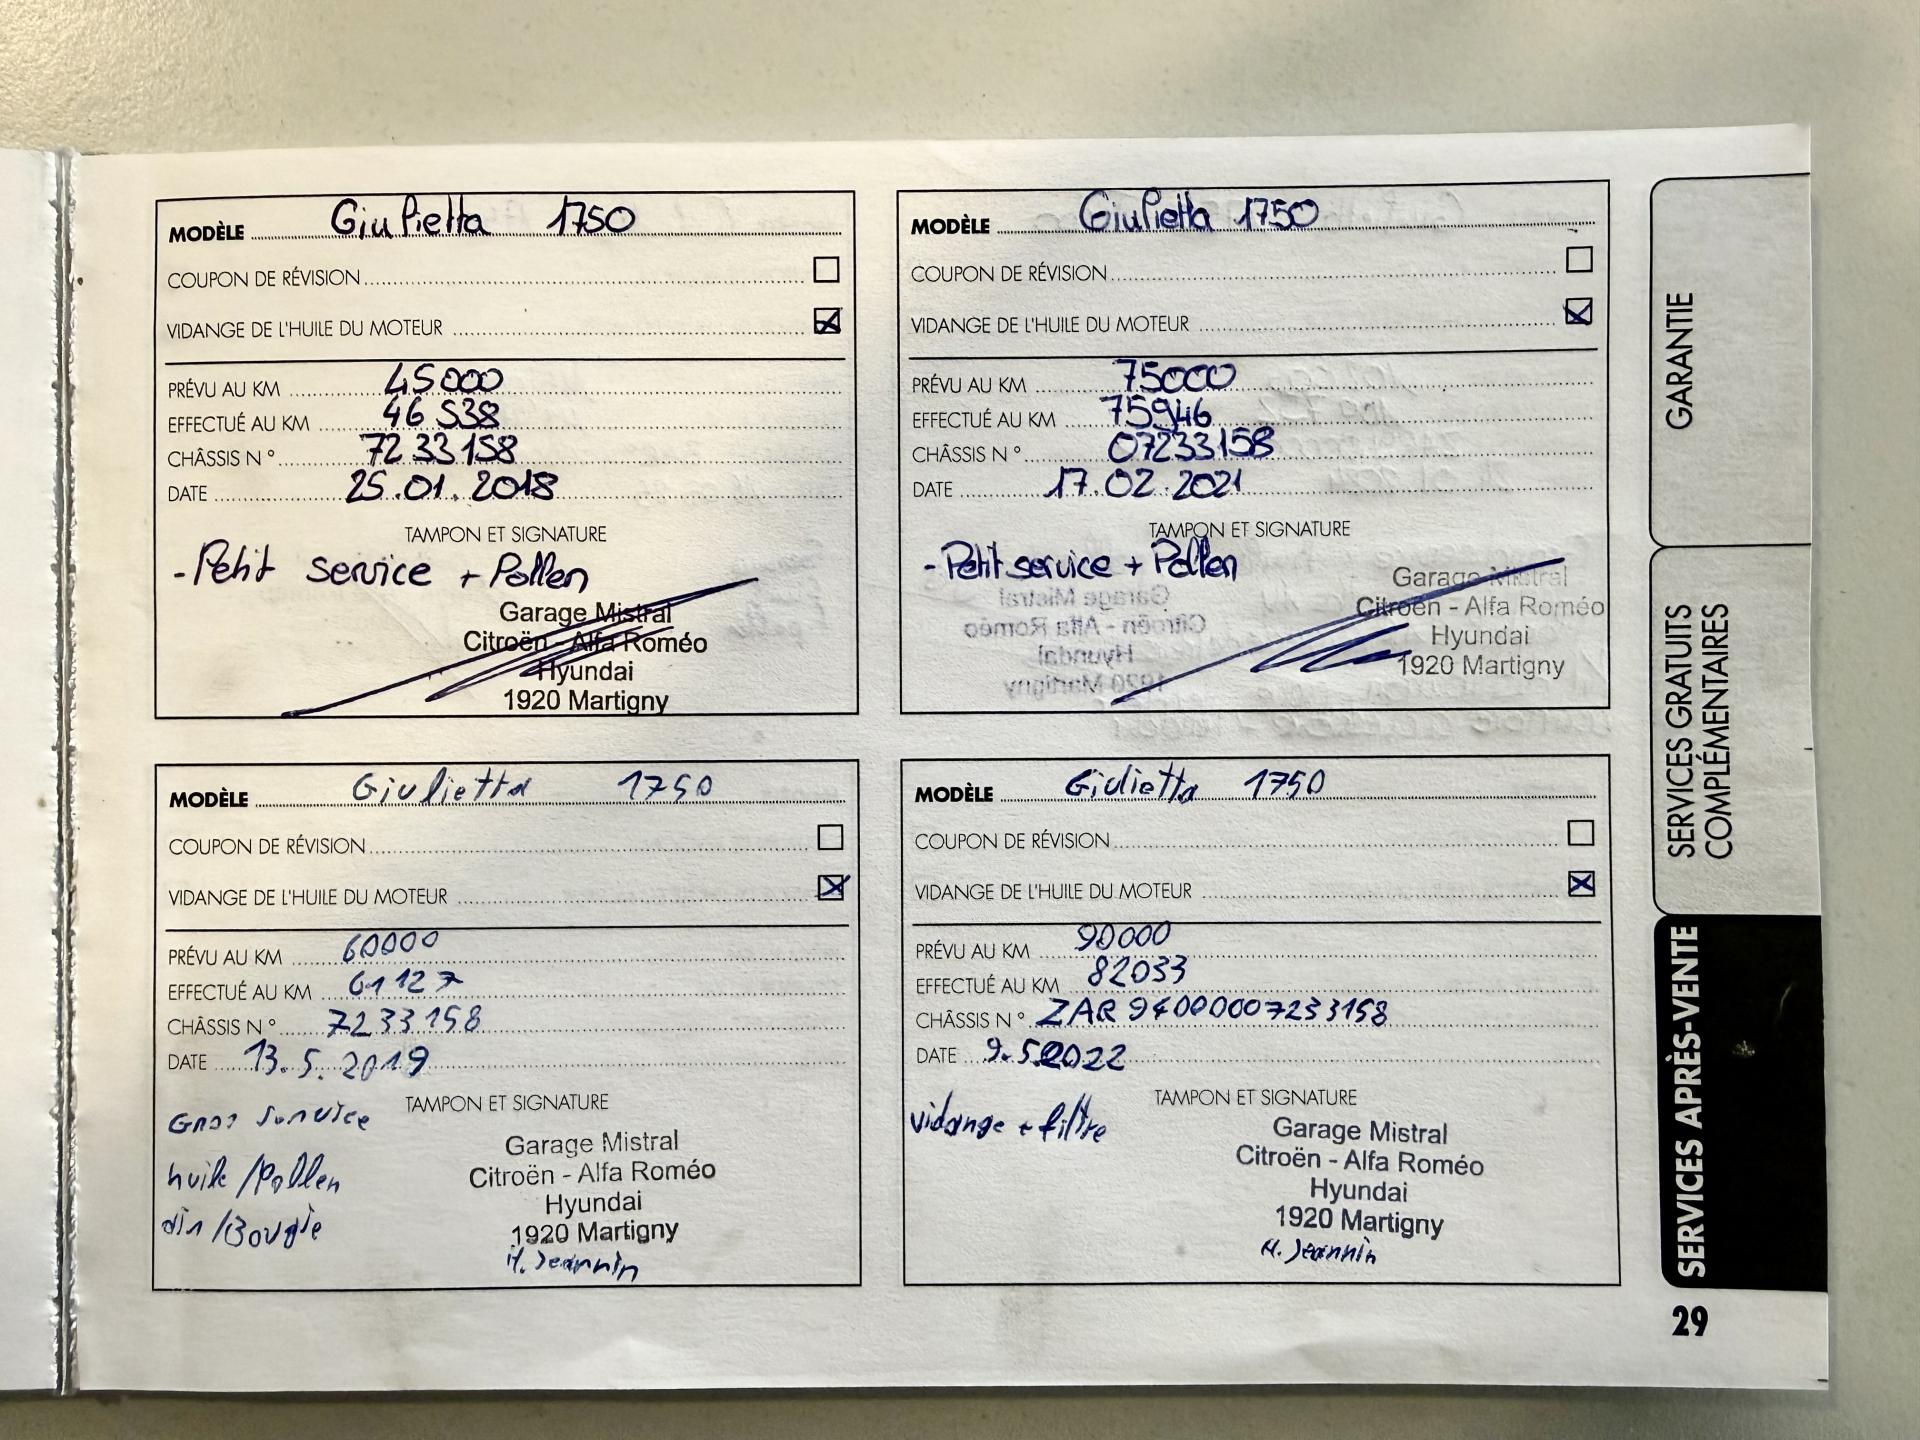 MODÈLE Giulietta 1750
COUPON DE RÉVISION
VIDANGE DE L'HUILE DU MOTEUR
PRÉVU AU KM 45000
EFFECTUÉ AU KM 46538
CHÂSSIS N° 7233158
DATE 25.01.2018
TAMPON ET SIGNATURE
- Petit service + Pollen
Garage Mistral
Citroën - Alfa Roméo
Hyundai
1920 Martigny
MODÈLE Giulietta 1750
COUPON DE RÉVISION
VIDANGE DE L'HUILE DU MOTEUR
PRÉVU AU KM 75000
EFFECTUÉ AU KM 75946
CHÂSSIS N° 07233158
DATE 17.02.2021
TAMPON ET SIGNATURE
- Petit service + Pollen
Garage Mistral
Citroën - Alfa Roméo
Hyundai
1920 Martigny
MODÈLE Giulietta 1750
COUPON DE RÉVISION
VIDANGE DE L'HUILE DU MOTEUR
PRÉVU AU KM 60000
EFFECTUÉ AU KM 61127
CHÂSSIS N° 7233158
DATE 13.5.2019
TAMPON ET SIGNATURE
Gros service
huile/Pollen
air/Bougie
Garage Mistral
Citroën - Alfa Roméo
Hyundai
1920 Martigny
H. Jeannin
MODÈLE Giulietta 1750
COUPON DE RÉVISION
VIDANGE DE L'HUILE DU MOTEUR
PRÉVU AU KM 90000
EFFECTUÉ AU KM 82033
CHÂSSIS N° ZAR94000007233158
DATE 9.5.2022
TAMPON ET SIGNATURE
vidange + filtre
Garage Mistral
Citroën - Alfa Roméo
Hyundai
1920 Martigny
H. Jeannin
GARANTIE
SERVICES GRATUITS
COMPLÉMENTAIRES
SERVICES APRÈS-VENTE
29